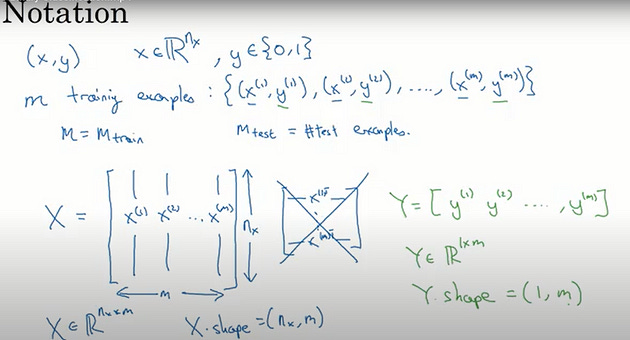 Notation
(x,y) x∈ℝ^{n_x}, y∈{0,1}
m trainiy examples : {(x^{(1)}, y^{(1)}), (x^{(2)}, y^{(2)}), ...., (x^{(m)}, y^{(m)})}
M = M_{train} M_{test} = #test examples.
X = [x^{(1)} x^{(2)} ... x^{(m)}] n_x
m
x^{(1)T}
⋮
x^{(m)T}
Y = [y^{(1)} y^{(2)} ...., y^{(m)}]
Y∈ℝ^{1×m}
Y.shape = (1, m)
X∈ℝ^{n_x×m} X.shape = (n_x, m)